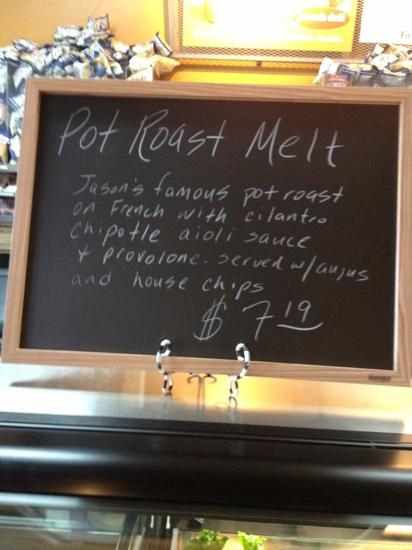 Pot Roast Melt
Jason's famous pot roast
on French with cilantro
chipotle aioli sauce
+ provolone. served w/ aujus
and house chips
$ 7.19